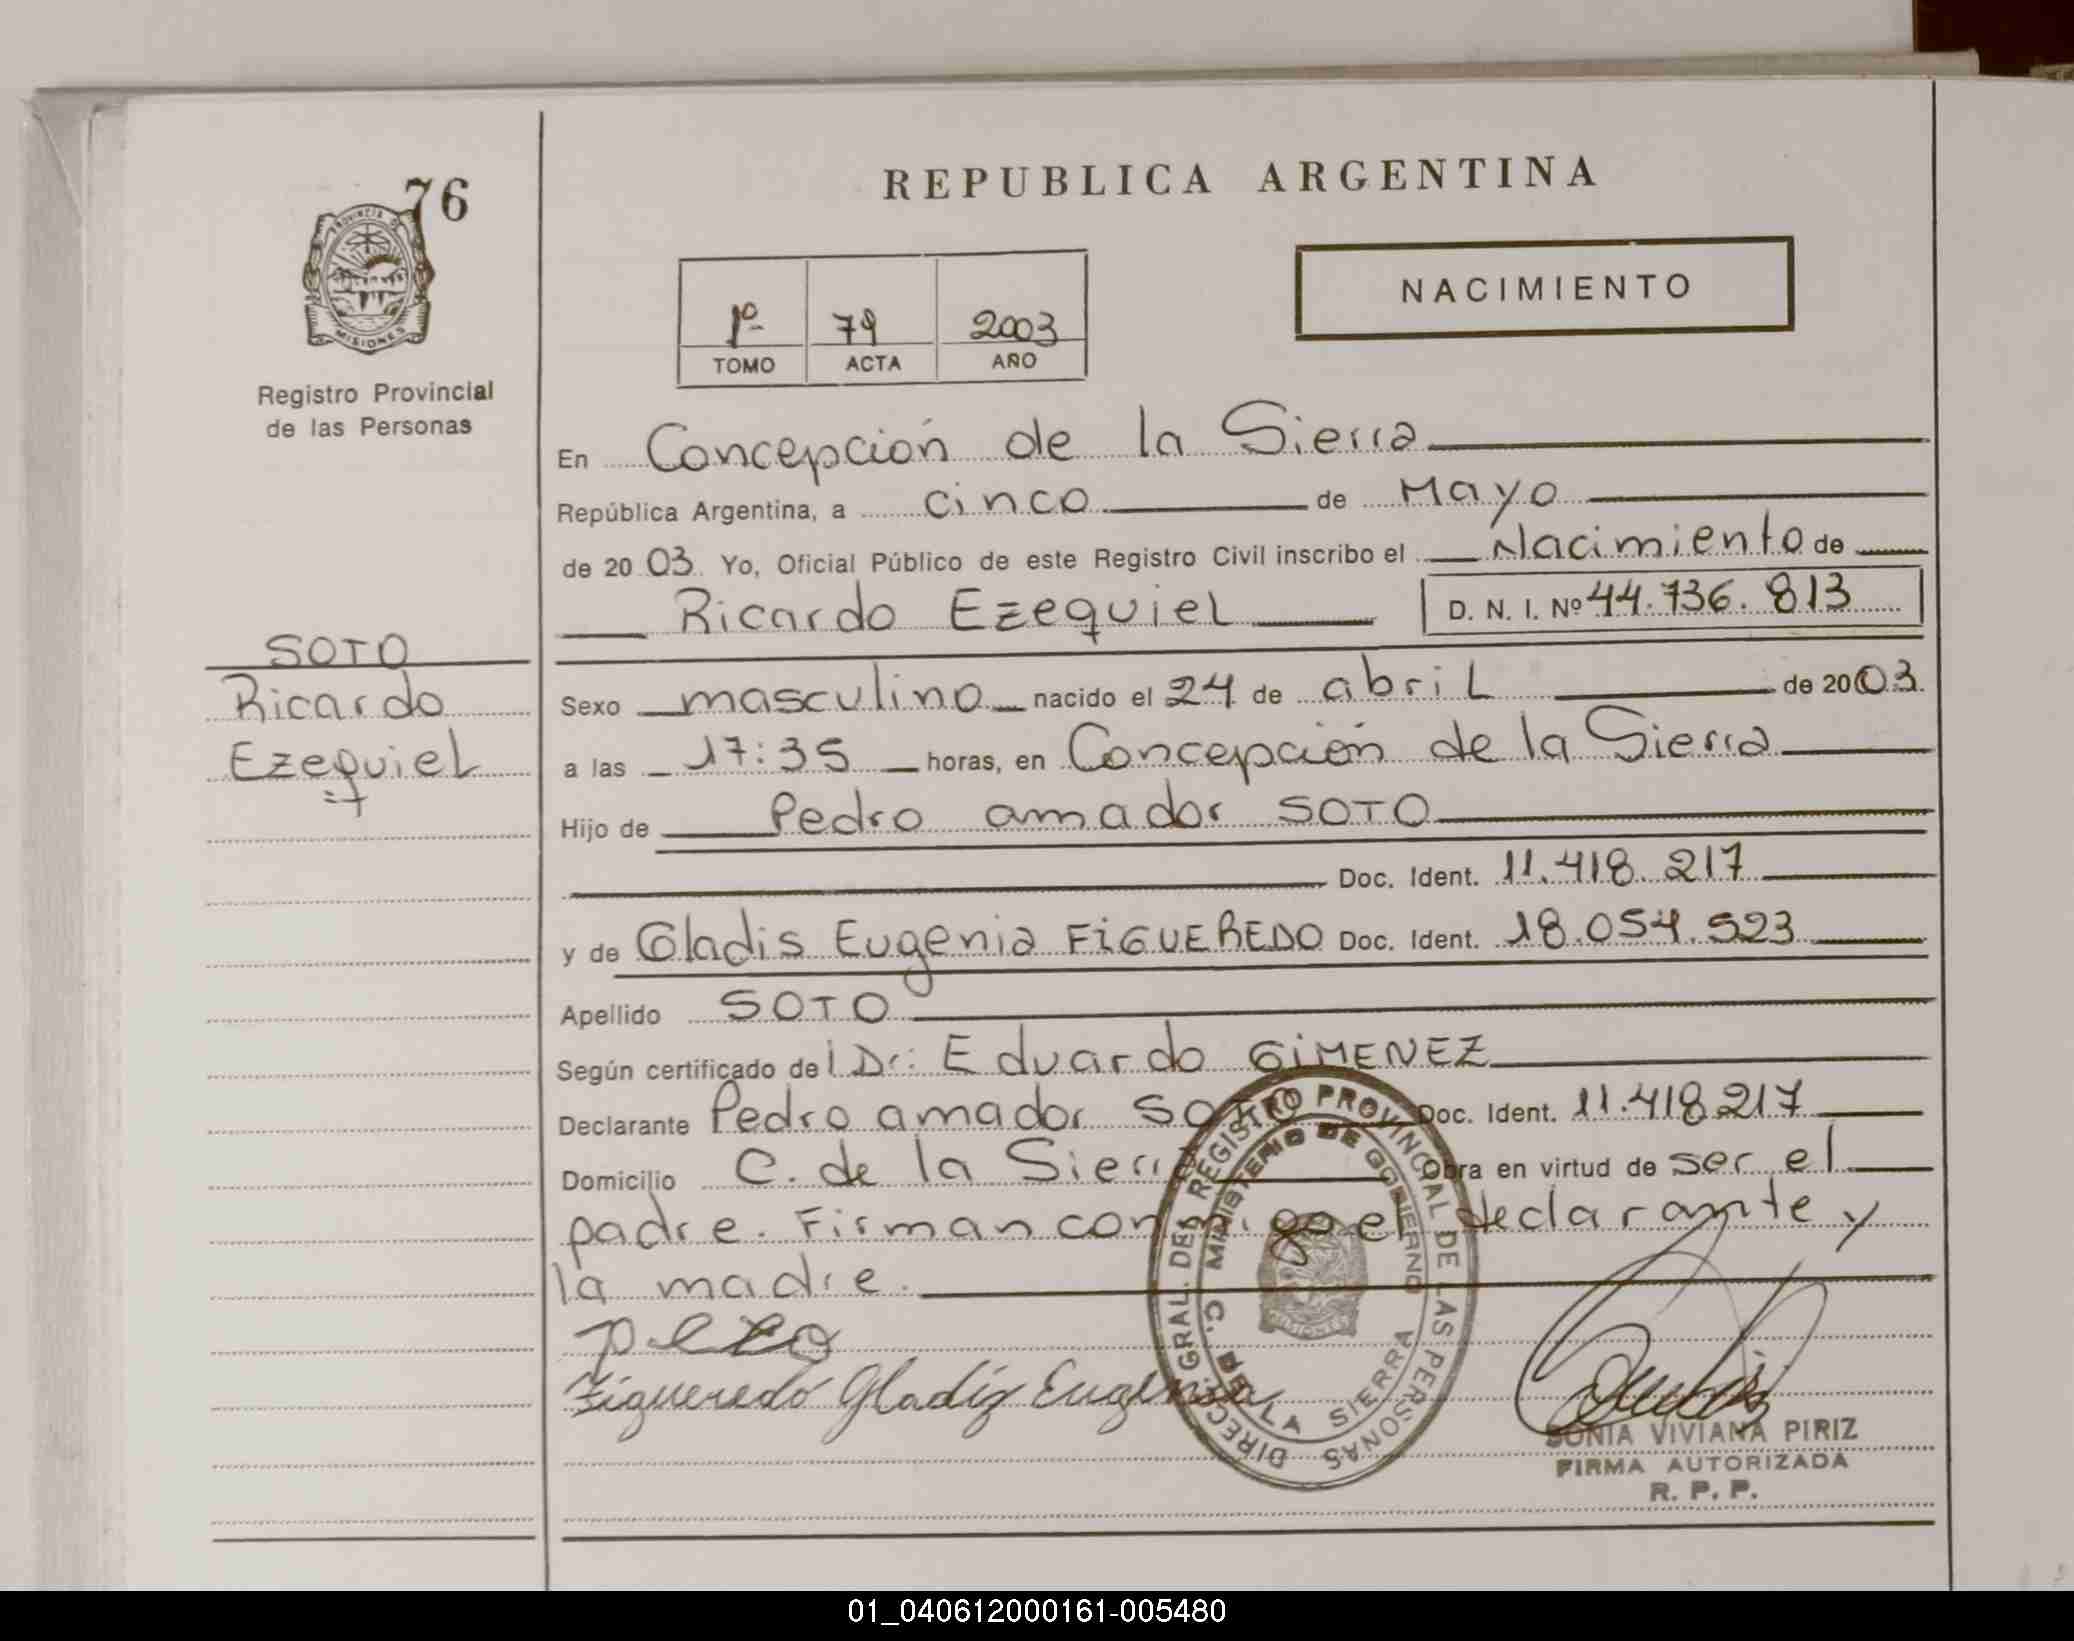 76
PROVINCIA DE
MISIONES
Registro Provincial
de las Personas
SOTO
Ricardo
Ezequiel
REPUBLICA ARGENTINA
NACIMIENTO
1º 79 2003
TOMO ACTA AÑO
En Concepción de la Sierra
República Argentina, a cinco de Mayo
de 2003. Yo, Oficial Público de este Registro Civil inscribo el Nacimiento de
Ricardo Ezequiel D. N. I. Nº 44.736.813
Sexo masculino nacido el 24 de abril de 2003.
a las 17:35 horas, en Concepción de la Sierra
Hijo de Pedro amador SOTO
Doc. Ident. 11.418.217
y de Gladis Eugenia FiGUEREDO Doc. Ident. 18.054.523
Apellido SOTO
Según certificado del Dr: Eduardo GiMENEZ
Declarante Pedro amador SOTO Doc. Ident. 11.418.217
Domicilio C. de la Sierra Obra en virtud de ser el
padre. Firman conmigo el declarante y
la madre.
Figueredo Gladiz Eugenia
DIRECC. GRAL. DEL REGISTRO PROVINCIAL DE LAS PERSONAS
MINISTERIO DE GOBIERNO
C. DE LA SIERRA
MISIONES
SONIA VIVIANA PIRIZ
FIRMA AUTORIZADA
R. P. P.
01_040612000161-005480